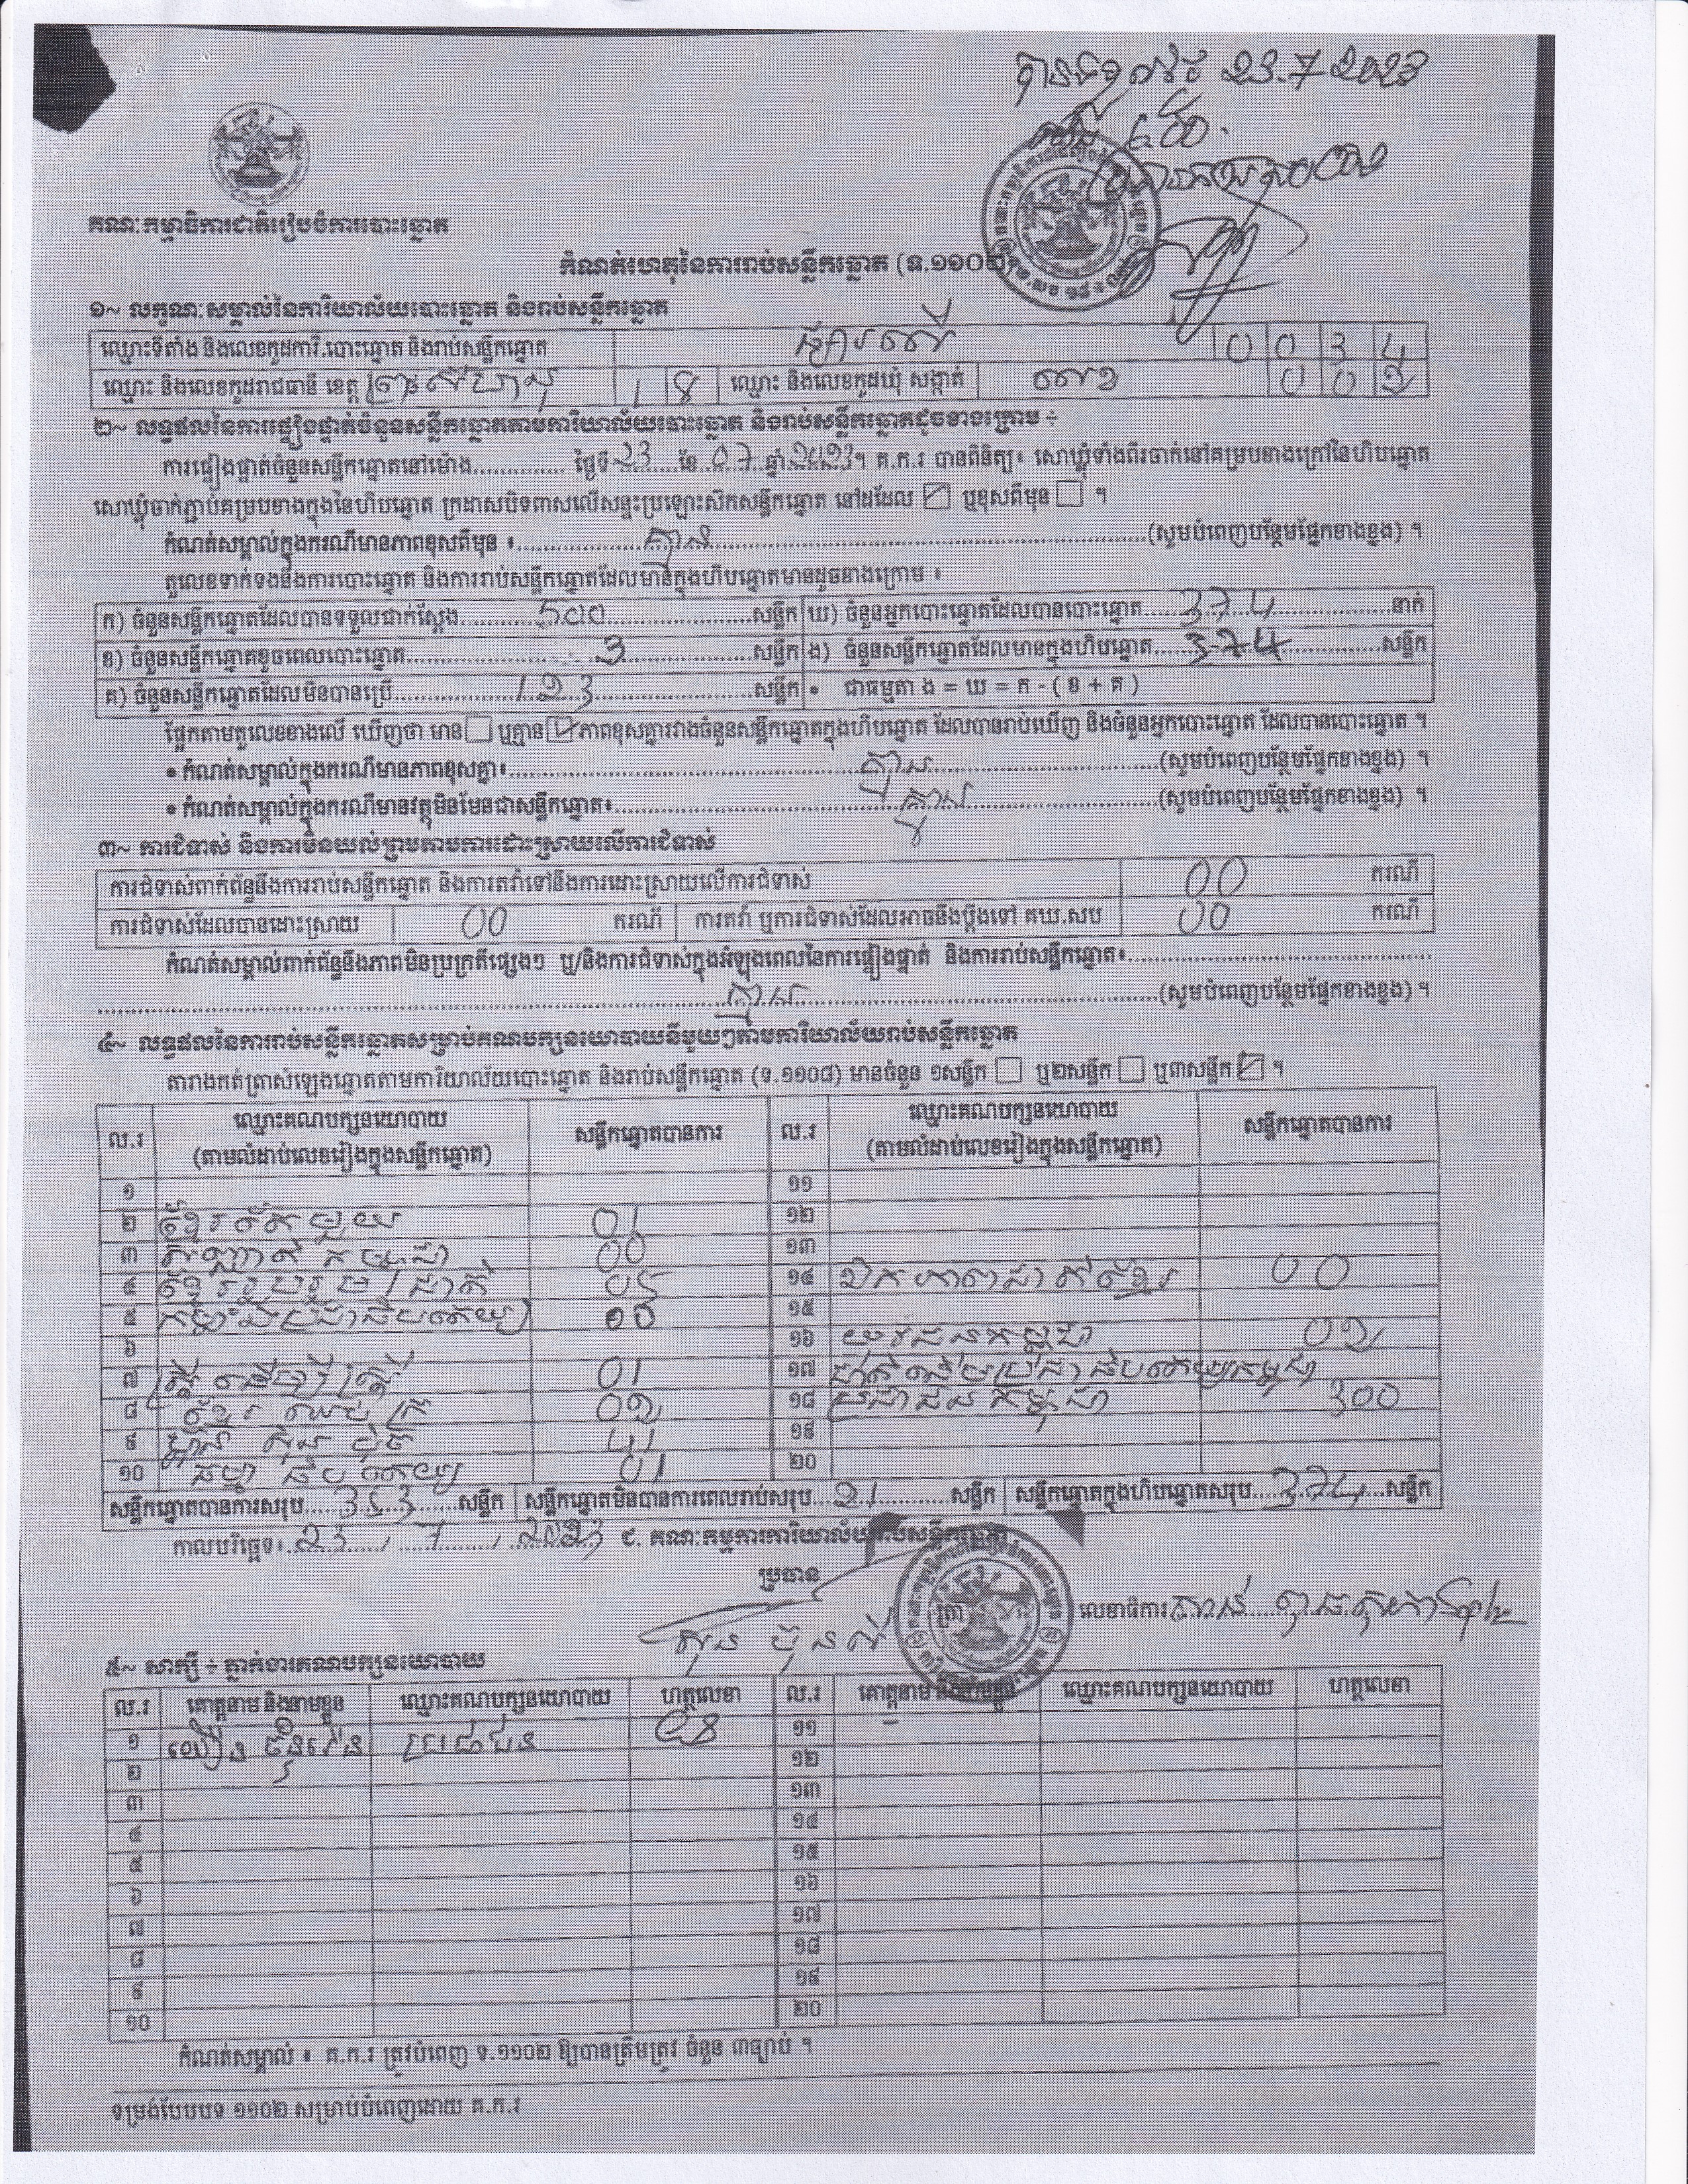 23.7 2023
គណៈកម្មាធិការជាតិរៀបចំការបោះឆ្នោត
កំណត់ហេតុនៃការរាប់សន្លឹកឆ្នោត (ទ.១១០២)
១~ លក្ខណៈសម្គាល់នៃការិយាល័យបោះឆ្នោត និងរាប់សន្លឹកឆ្នោត
ឈ្មោះទីតាំង និងលេខកូដការិ.បោះឆ្នោត និងរាប់សន្លឹកឆ្នោត 0 0 3 4
ឈ្មោះ និងលេខកូដរាជធានី ខេត្ត ព្រះសីហនុ 1 8 ឈ្មោះ និងលេខកូដឃុំ សង្កាត់ 0 0 2
២~ លទ្ធផលនៃការផ្ទៀងផ្ទាត់ចំនួនសន្លឹកឆ្នោតតាមការិយាល័យបោះឆ្នោត និងរាប់សន្លឹកឆ្នោតដូចខាងក្រោម ÷
ការផ្ទៀងផ្ទាត់ចំនួនសន្លឹកឆ្នោតនៅម៉ោង.............. ថ្ងៃទី 23 ខែ 07 ឆ្នាំ 2023។ គ.ក.រ បានពិនិត្យ៖ សោឃ្លុំទាំងពីរចាក់នៅគម្របខាងក្រៅនៃហិបឆ្នោត
សោឃ្លុំចាក់ភ្ជាប់គម្របខាងក្នុងនៃហិបឆ្នោត ក្រដាសបិទពាសលើសន្ទះប្រឡោះស៊កសន្លឹកឆ្នោត នៅដដែល ☑ ឬខុសពីមុន ☐ ។
កំណត់សម្គាល់ក្នុងករណីមានភាពខុសពីមុន ៖ គ្មាន (សូមបំពេញបន្ថែមផ្នែកខាងខ្នង) ។
តួលេខទាក់ទងនឹងការបោះឆ្នោត និងការរាប់សន្លឹកឆ្នោតដែលមានក្នុងហិបឆ្នោតមានដូចខាងក្រោម ៖
ក) ចំនួនសន្លឹកឆ្នោតដែលបានទទួលជាក់ស្តែង 500 សន្លឹក ឃ) ចំនួនអ្នកបោះឆ្នោតដែលបានបោះឆ្នោត 374 នាក់
ខ) ចំនួនសន្លឹកឆ្នោតខូចពេលបោះឆ្នោត 3 សន្លឹក ង) ចំនួនសន្លឹកឆ្នោតដែលមានក្នុងហិបឆ្នោត 374 សន្លឹក
គ) ចំនួនសន្លឹកឆ្នោតដែលមិនបានប្រើ 123 សន្លឹក • ជាធម្មតា ង = ឃ = ក - ( ខ + គ )
ផ្អែកតាមតួលេខខាងលើ ឃើញថា មាន ☐ ឬគ្មាន ☑ ភាពខុសគ្នារវាងចំនួនសន្លឹកឆ្នោតក្នុងហិបឆ្នោត ដែលបានរាប់ឃើញ និងចំនួនអ្នកបោះឆ្នោត ដែលបានបោះឆ្នោត ។
• កំណត់សម្គាល់ក្នុងករណីមានភាពខុសគ្នា៖ គ្មាន (សូមបំពេញបន្ថែមផ្នែកខាងខ្នង) ។
• កំណត់សម្គាល់ក្នុងករណីមានវត្ថុមិនមែនជាសន្លឹកឆ្នោត៖ គ្មាន (សូមបំពេញបន្ថែមផ្នែកខាងខ្នង) ។
៣~ ការជំទាស់ និងការមិនយល់ព្រមតាមការដោះស្រាយលើការជំទាស់
ការជំទាស់ពាក់ព័ន្ធនឹងការរាប់សន្លឹកឆ្នោត និងការតវ៉ាទៅនឹងការដោះស្រាយលើការជំទាស់ 00 ករណី
ការជំទាស់ដែលបានដោះស្រាយ 00 ករណី ការតវ៉ា ឬការជំទាស់ដែលអាចនឹងប្តឹងទៅ គឃ.សប 00 ករណី
កំណត់សម្គាល់ពាក់ព័ន្ធនឹងភាពមិនប្រក្រតីផ្សេងៗ ឬ/និងការជំទាស់ក្នុងអំឡុងពេលនៃការផ្ទៀងផ្ទាត់ និងការរាប់សន្លឹកឆ្នោត៖
គ្មាន (សូមបំពេញបន្ថែមផ្នែកខាងខ្នង) ។
៤~ លទ្ធផលនៃការរាប់សន្លឹកឆ្នោតសម្រាប់គណបក្សនយោបាយនីមួយៗតាមការិយាល័យរាប់សន្លឹកឆ្នោត
តារាងកត់ត្រាសំឡេងឆ្នោតតាមការិយាល័យបោះឆ្នោត និងរាប់សន្លឹកឆ្នោត (ទ.១១០៨) មានចំនួន ១សន្លឹក ☐ ឬ២សន្លឹក ☐ ឬ៣សន្លឹក ☑ ។
ល.រ ឈ្មោះគណបក្សនយោបាយ (តាមលំដាប់លេខរៀងក្នុងសន្លឹកឆ្នោត) សន្លឹកឆ្នោតបានការ ល.រ ឈ្មោះគណបក្សនយោបាយ (តាមលំដាប់លេខរៀងក្នុងសន្លឹកឆ្នោត) សន្លឹកឆ្នោតបានការ
១ ១១
២ ខ្មែរតែមួយ 01 ១២
៣ 00 ១៣
៤ ខ្មែររួបរួមជាតិ 05 ១៤ ឯកភាពជាតិខ្មែរ 00
៥ កម្លាំងប្រជាធិបតេយ្យ ១៥
៦ ១៦ យុវជនកម្ពុជា 02
៧ ស្ត្រីដើម្បីស្ត្រី 01 ១៧
៨ ខ្មែរឈប់ក្រ 02 ១៨ ប្រជាជនកម្ពុជា 300
៩ ហ៊្វុនស៊ិនប៉ិច 41 ១៩
១០ ធម្មាធិបតេយ្យ 01 ២០
សន្លឹកឆ្នោតបានការសរុប 353 សន្លឹក សន្លឹកឆ្នោតមិនបានការពេលរាប់សរុប 21 សន្លឹក សន្លឹកឆ្នោតក្នុងហិបឆ្នោតសរុប 374 សន្លឹក
កាលបរិច្ឆេទ៖ 23 / 7 / 2023 ជ. គណៈកម្មការការិយាល័យរាប់សន្លឹកឆ្នោត
ប្រធាន
លេខាធិការ
៥~ សាក្សី ÷ ភ្នាក់ងារគណបក្សនយោបាយ
ល.រ គោត្តនាម និងនាមខ្លួន ឈ្មោះគណបក្សនយោបាយ ហត្ថលេខា ល.រ គោត្តនាម និងនាមខ្លួន ឈ្មោះគណបក្សនយោបាយ ហត្ថលេខា
១ ប្រជាជន ១១
២ ១២
៣ ១៣
៤ ១៤
៥ ១៥
៦ ១៦
៧ ១៧
៨ ១៨
៩ ១៩
១០ ២០
កំណត់សម្គាល់ ៖ គ.ក.រ ត្រូវបំពេញ ទ.១១០២ ឱ្យបានត្រឹមត្រូវ ចំនួន ៣ច្បាប់ ។
ទម្រង់បែបបទ ១១០២ សម្រាប់បំពេញដោយ គ.ក.រ